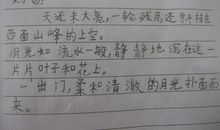 天还未大亮,一轮残月还斜挂在
西面山峰的上空。
月光如流水一般,静静地泻在这一
片片叶子和花上。
一出门,柔和清澈的月光扑面而
来。